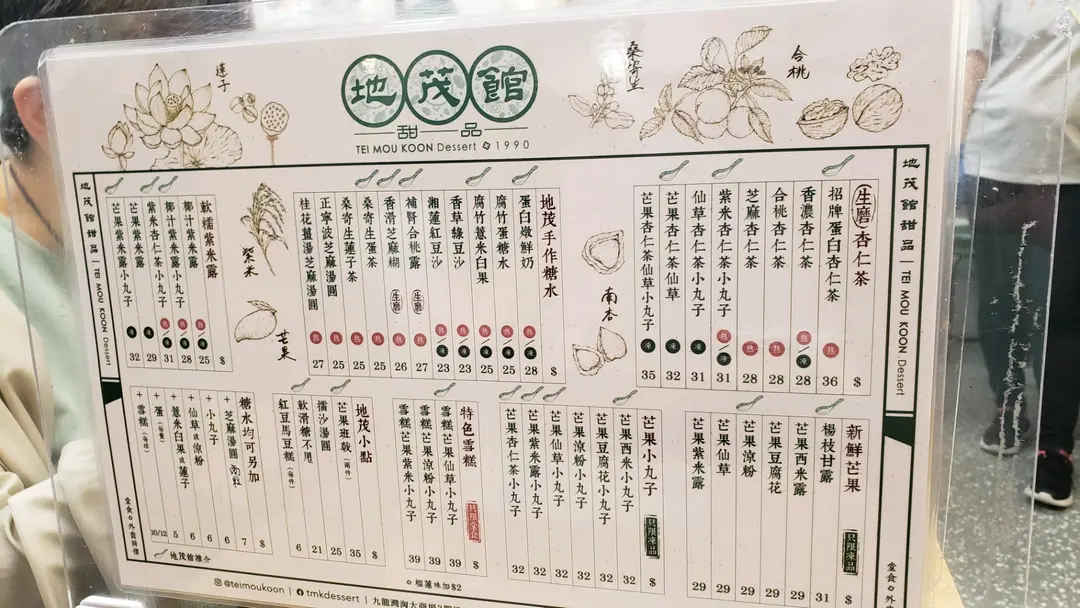 地茂館
甜品
TEI MOU KOON Dessert 1990
蓮子
桑寄生
合桃
紫米
芒果
南杏
地茂館甜品 | TEI MOU KOON Dessert
地茂館甜品 | TEI MOU KOON Dessert
生磨 杏仁茶 $
招牌蛋白杏仁茶 熱 36
香濃杏仁茶 熱/凍 28
合桃杏仁茶 熱 28
芝麻杏仁茶 熱 28
紫米杏仁茶小丸子 熱/凍 31
仙草杏仁茶小丸子 凍 31
芒果杏仁茶仙草 凍 32
芒果杏仁茶仙草小丸子 凍 35
地茂手作糖水 $
蛋白燉鮮奶 熱/凍 28
腐竹蛋糖水 熱/凍 25
腐竹薏米白果 熱/凍 25
香草綠豆沙 熱/凍 23
湘蓮紅豆沙 熱/凍 23
補腎合桃露 生磨 熱 27
香滑芝麻糊 生磨 熱 26
桑寄生蛋茶 熱 25
桑寄生蓮子茶 熱 25
正寧波芝麻湯圓 熱 25
桂花薑湯芝麻湯圓 熱 27
軟糯紫米露 $
椰汁紫米露 熱/凍 25
椰汁紫米露小丸子 熱/凍 28
紫米杏仁茶小丸子 熱/凍 31
芒果紫米露 凍 29
芒果紫米露小丸子 凍 32
新鮮芒果 只限凍品 $
楊枝甘露 31
芒果西米露 29
芒果豆腐花 29
芒果涼粉 29
芒果仙草 29
芒果紫米露 29
芒果小丸子 只限凍品 $
芒果西米小丸子 32
芒果豆腐花小丸子 32
芒果涼粉小丸子 32
芒果仙草小丸子 32
芒果紫米露小丸子 32
芒果杏仁茶小丸子 32
特色雪糕 只限堂食 $
雪糕芒果仙草小丸子 39
雪糕芒果涼粉小丸子 39
雪糕芒果紫米小丸子 39
地茂小點 $
芒果班戟(兩件) 35
擂沙湯圓 25
軟滑糖不甩 21
紅豆馬豆糕(每件) 6
糖水均可另加 $
+芝麻湯圓 7
+小丸子 6
+仙草或涼粉 6
+薏米白果或蓮子 6
+蛋 5
+雪糕 10/12
堂食
外賣同價
地茂館推介
榴蓮味加$2
堂食
@teimoukoon | tmkdessert | 九龍灣淘大商場